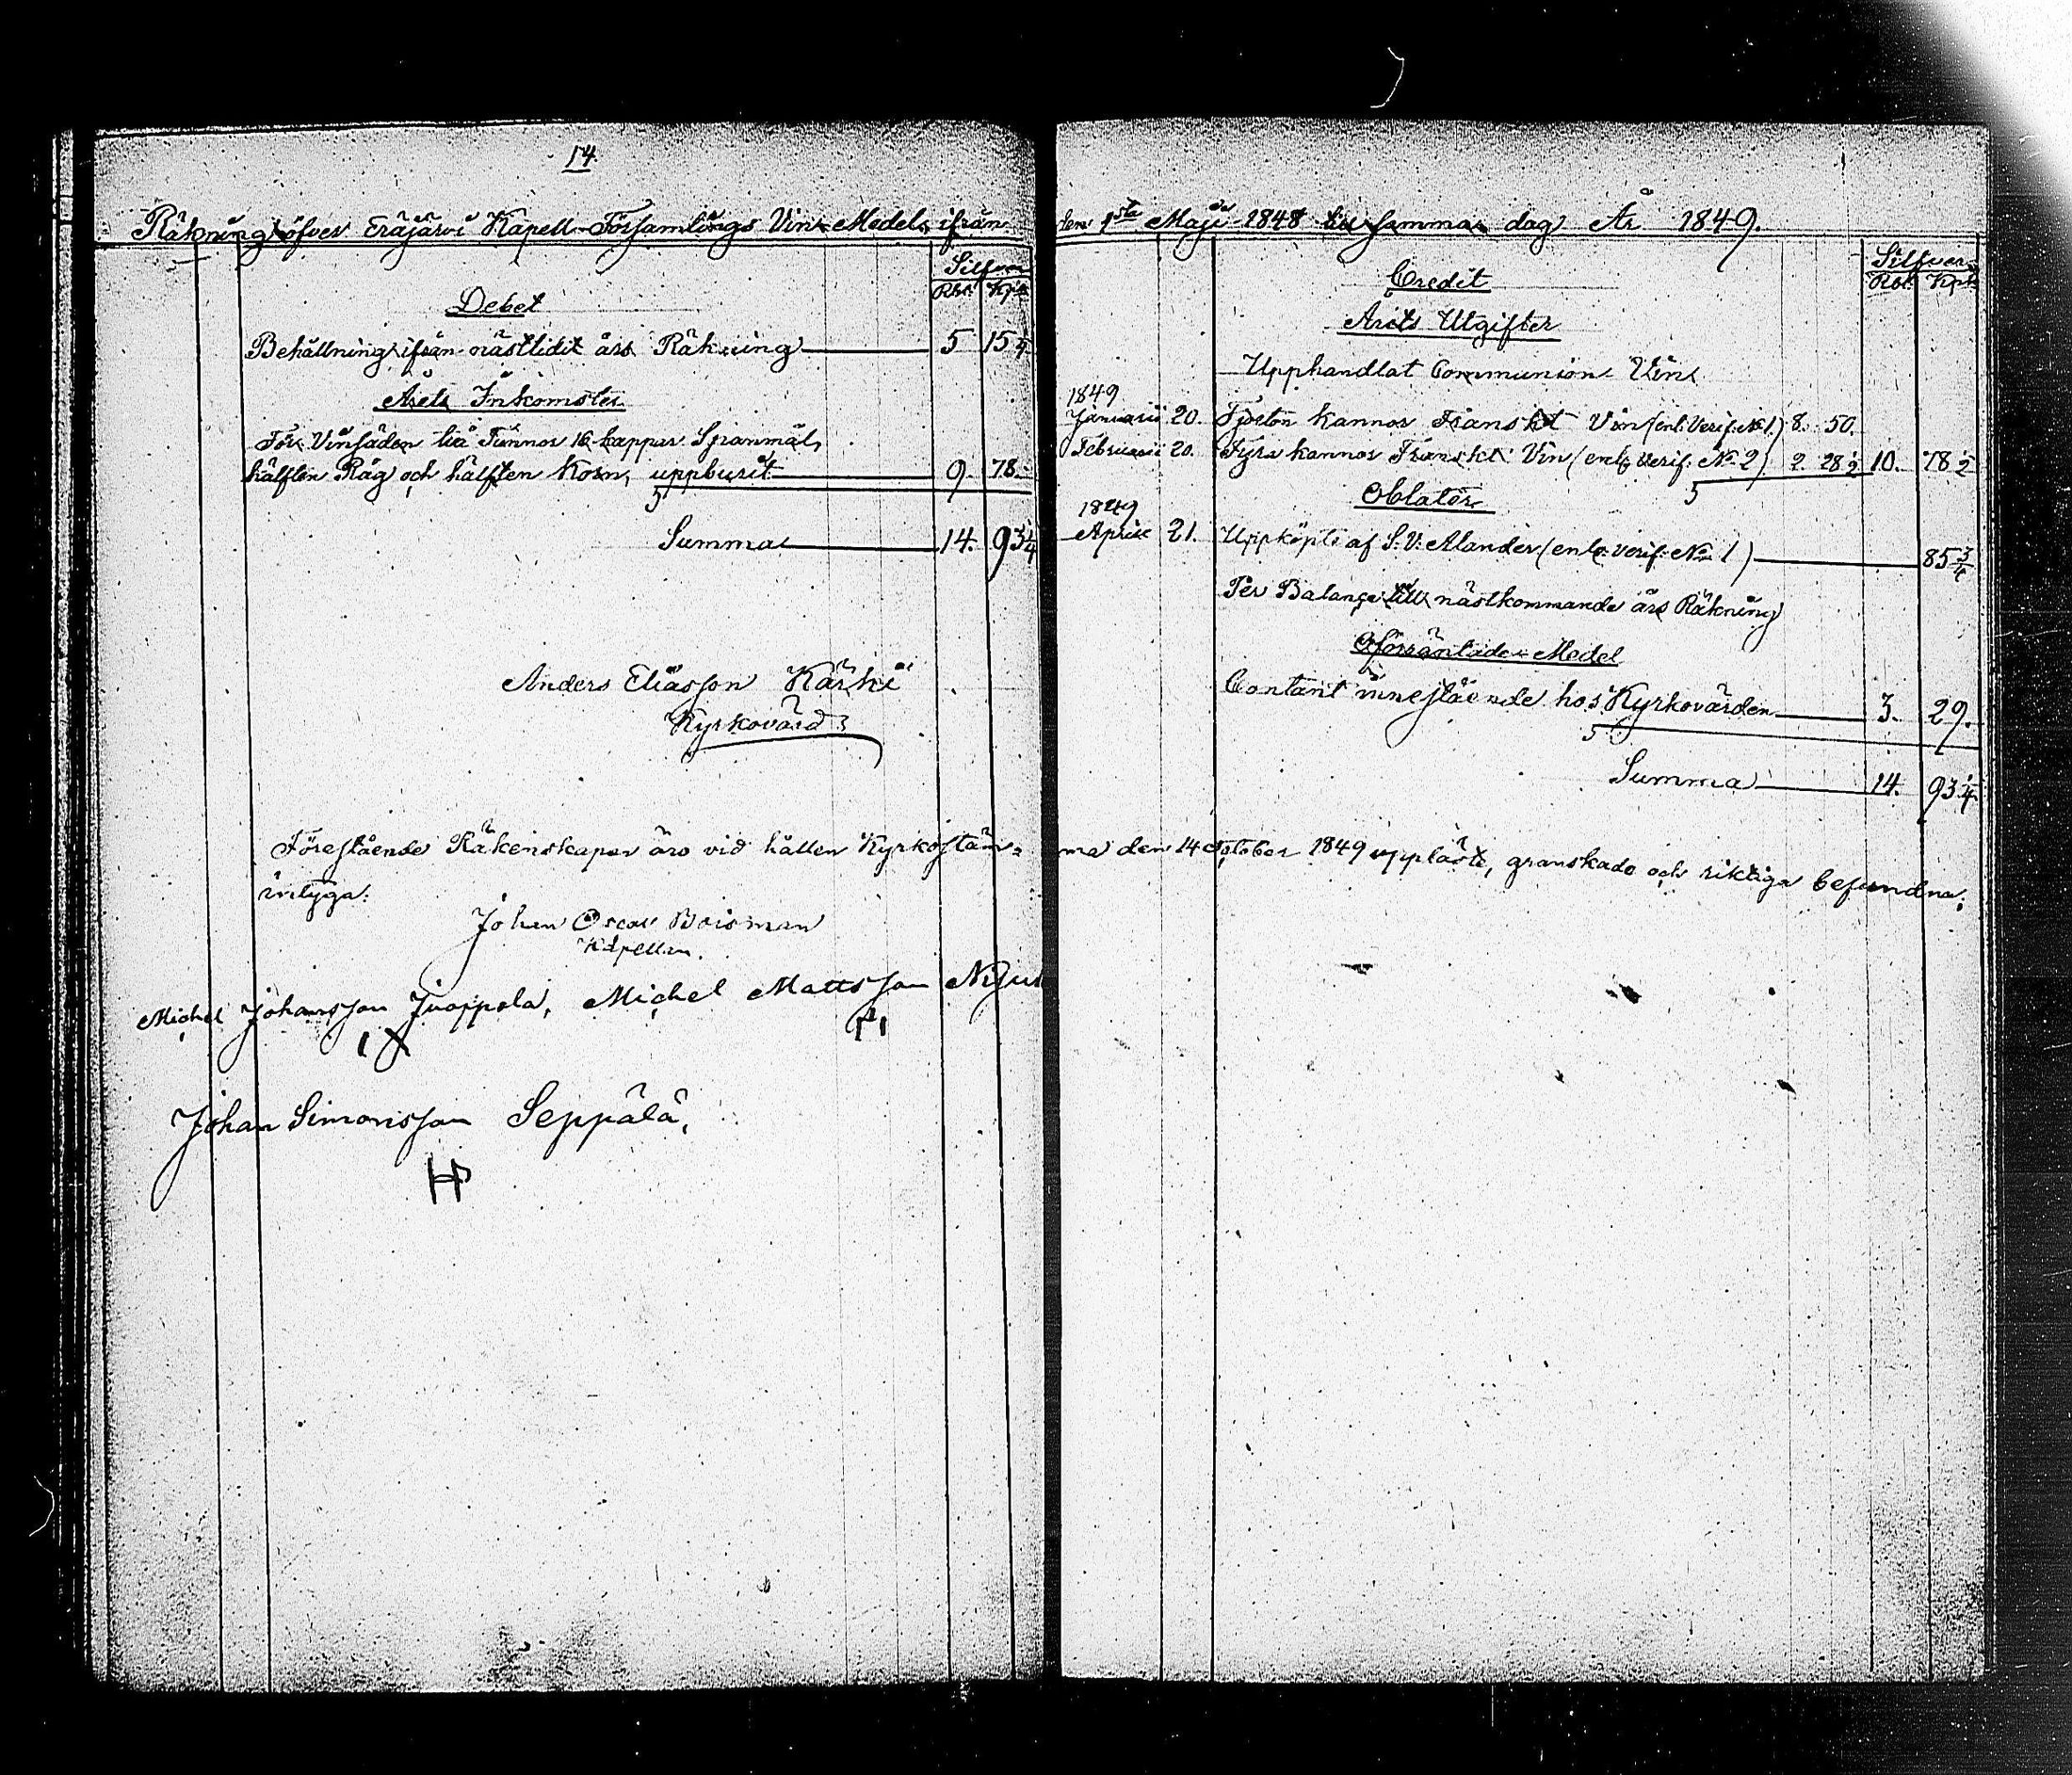 14.
Räkning öfver Eräjärvi Kapell-Församlings Vin-Medel, ifrån
Silfver
Rbl. Kpk
Debet
Behållning ifrån nästlidit års Räkning 5 15 1/4
Årets Inkomster
För Vinsäden två Tunnor 16 kappar Spanmål,
hälften Råg och hälften Korn, uppburit 9. 78.
Summa 14. 93 1/4
Anders Eliasson Kärki
Kyrkovärd
Förestående Räkenskaper äro vid hållen Kyrkostäm-
intyga:
Johan Oscar Boisman
Kapellan.
Michel Johansson Juoppola, Michel Mattsson
Johan Simonsson Seppälä,
den 1sta Maji 1848 till samma dag År 1849.
Silfver
Rbl. Kpk
Credit
Årets Utgifter
Upphandlat Communion Vin
1849
Januarii 20. Fjorton kannor Franskt Vin (enl. Verif. No 1.) 8. 50.
Februarii 20. Fyra kannor Franskt Vin (enl. Verif. No 2) 2. 28 1/2 10. 78 1/2
Oblater
1849
April 21. Uppköpte af S. V. Alander (enl. verif. No 1) 85 3/4
Per Balance till nästkommande års Räkning
Oförräntade Medel
Contant innestående hos Kyrkovärden 3. 29.
Summa 14. 93 1/4
ma den 14 October 1849 uppläste, granskade och riktiga befundna;